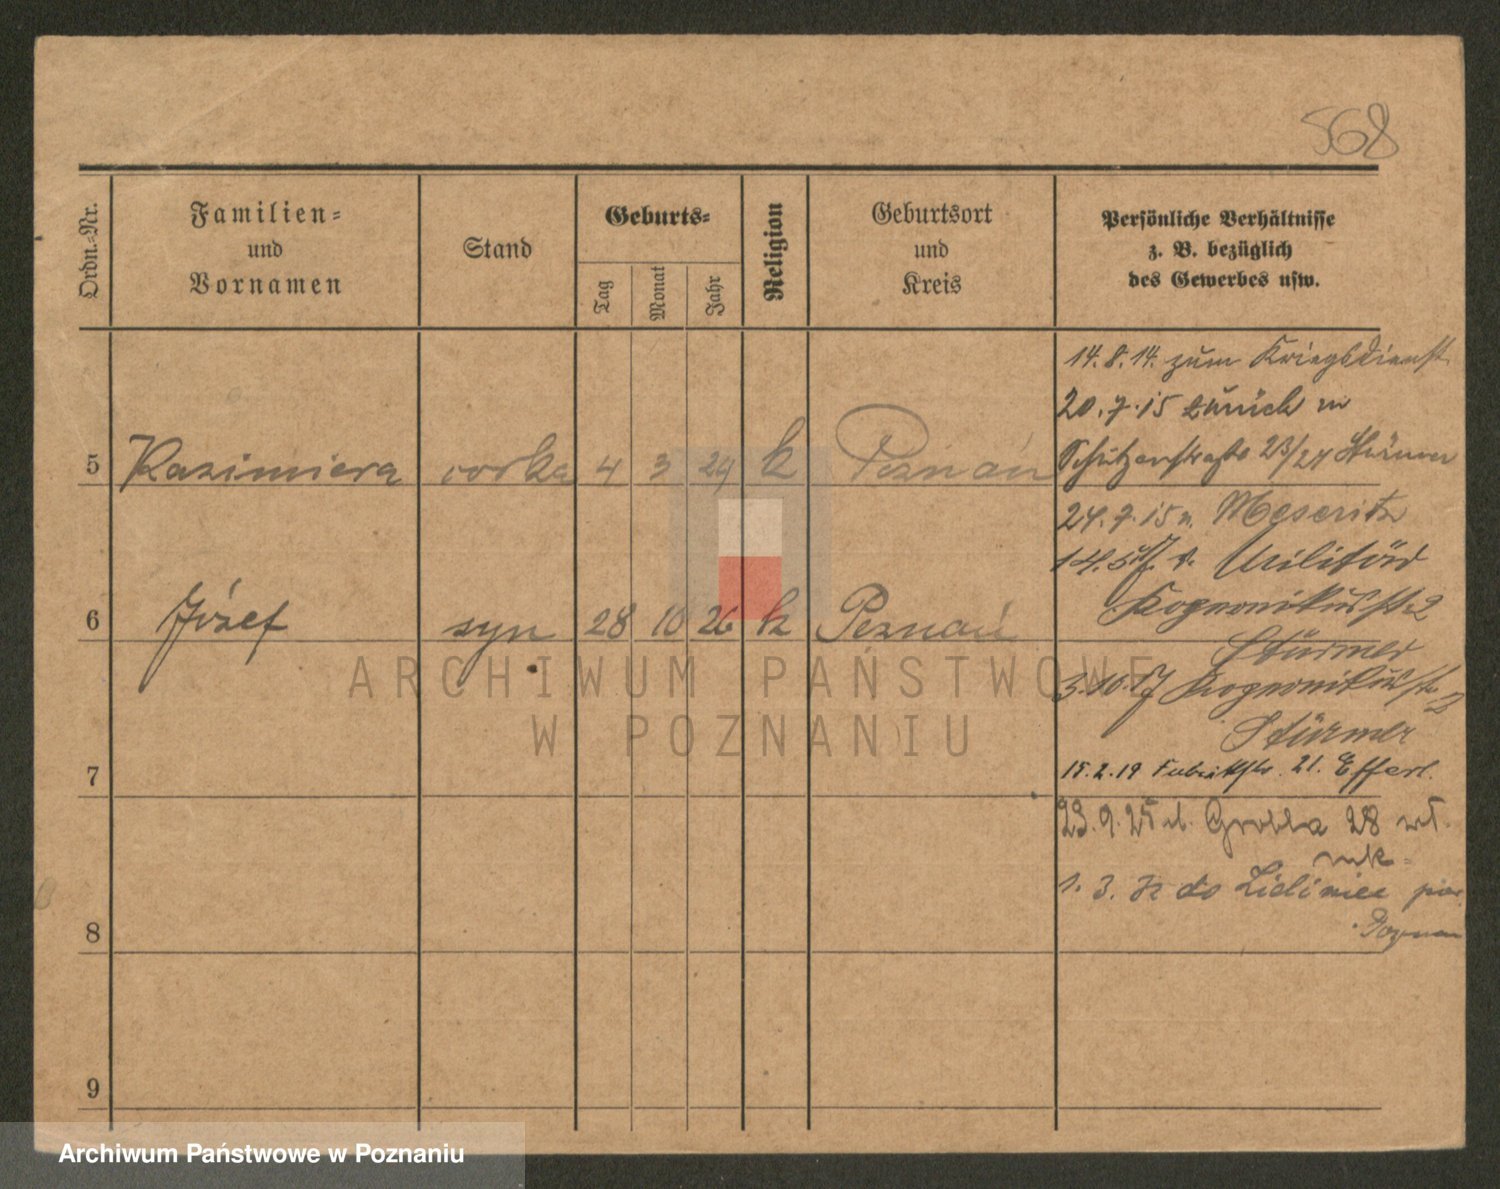 568
Ordn.-Nr.
Familien-
und
Vornamen
Stand
Geburts-
Tag
Monat
Jahr
Religion
Geburtsort
und
Kreis
Persönliche Verhältnisse
z. B. bezüglich
des Gewerbes usw.
14.8.14. zum Kriegsdienst
20.7.15 zurück in
5 Kazimiera corka 4 3 29 k Poznań
Schützenstraße 23/24 Stürmer
24.7.15 n. Meseritz
14.5.17. v. Militär
Kopernikusstr 2
6 Józef syn 28 10 26 k Poznań
Stürmer
3.10.17 Kopernikusstr 2
Stürmer
7
15.2.19 Fabrikstr. 21. Effert.
23.9.25 Grobla 28
1.3. do pow.
8
Poznan
9
ARCHIWUM PAŃSTWOWE
W POZNANIU
Archiwum Państwowe w Poznaniu